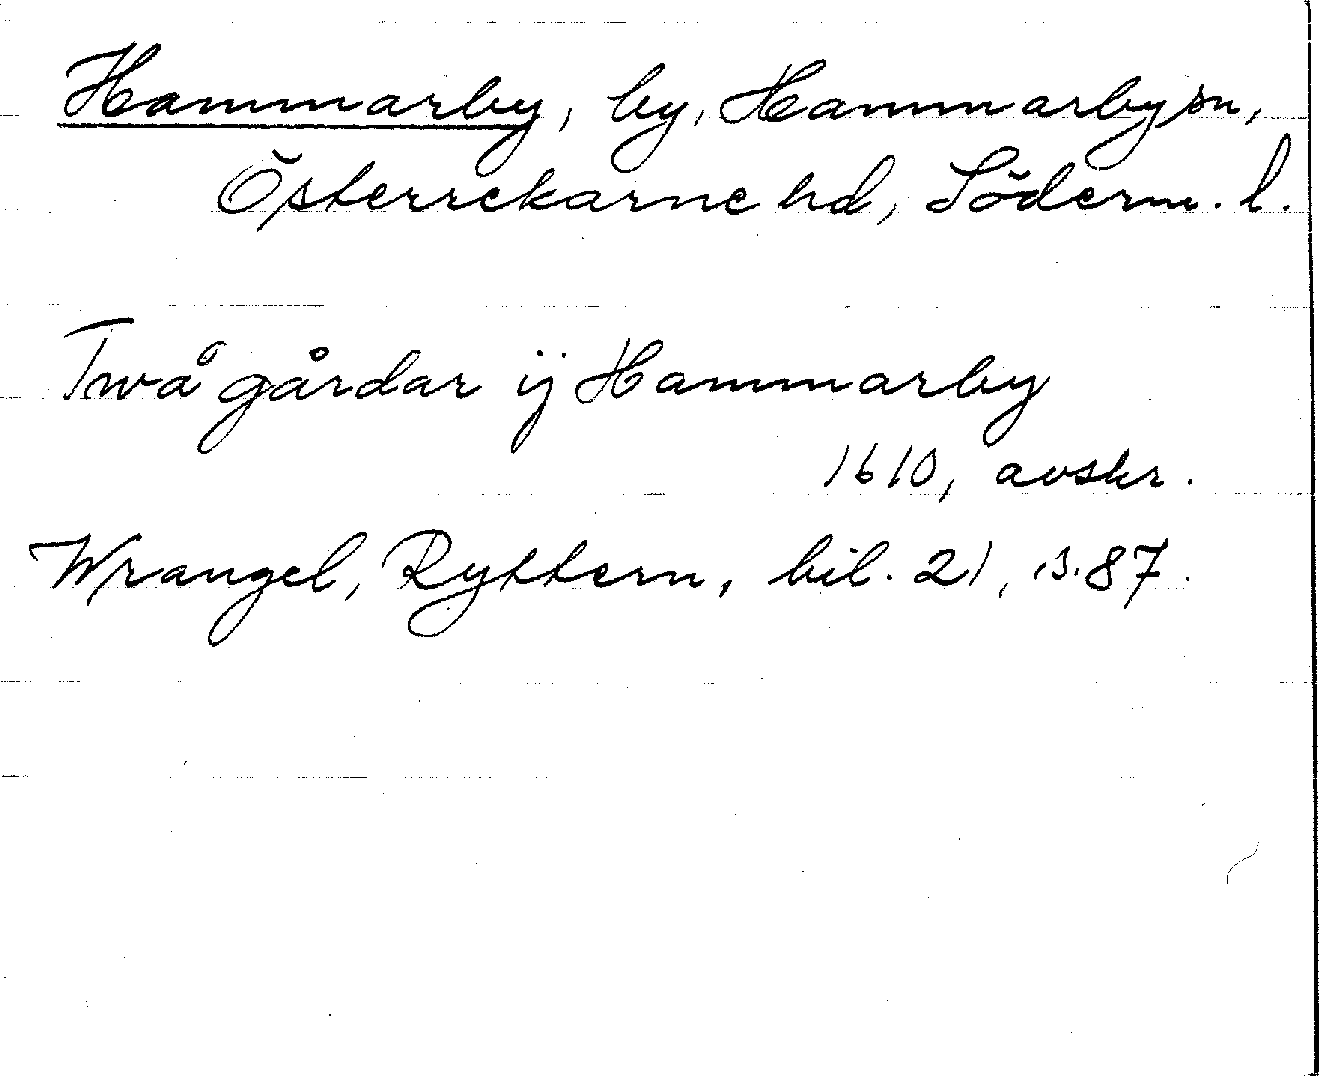 Hammarby, by, Hammarby sn,
Österrekarne hd, Söderm. l.
Twå gårdar ij Hammarby
1610, avskr.
Wrangel, Ryttern, bil. 21, s. 87.